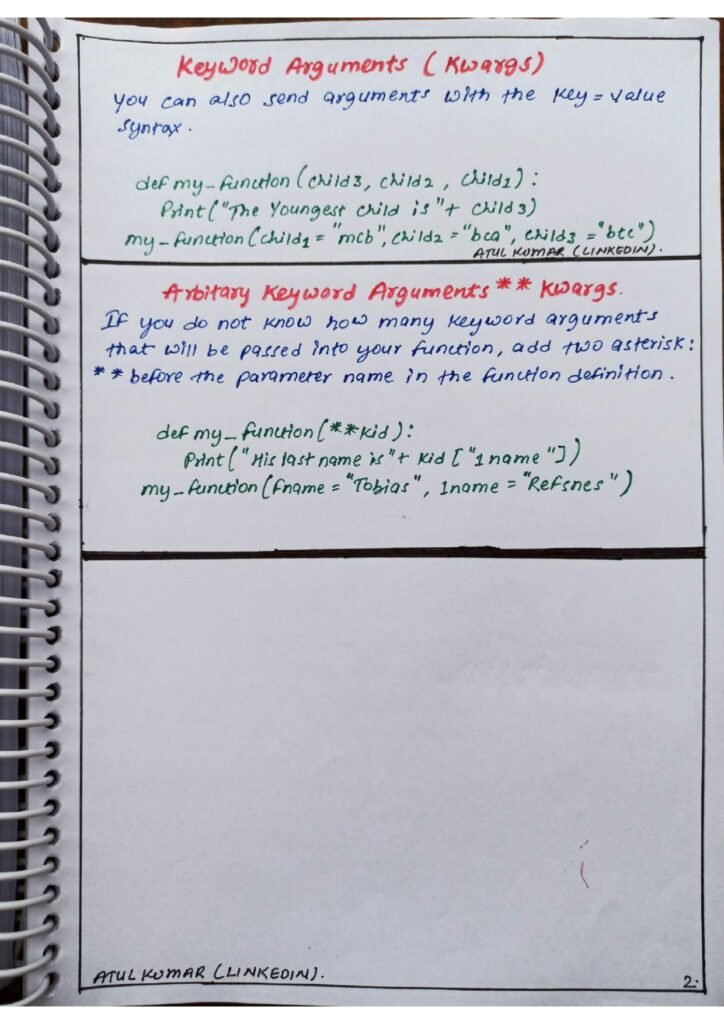 Keyword Arguments (Kwargs)
You can also send arguments with the Key = value
syntax.
def my_function (child3, child2, child1):
Print("The Youngest child is "+ child3)
my_function (child1 = "mcb", child2 = "bca", child3 = "btc")
ATUL KUMAR (LINKEDIN).
Arbitary Keyword Arguments ** Kwargs.
If you do not know how many keyword arguments
that will be passed into your function, add two asterisk:
** before the parameter name in the function definition.
def my_function(**kid):
Print("His last name is "+ kid ["1name"])
my_function(fname = "Tobias", 1name = "Refsnes")
ATUL KUMAR (LINKEDIN).
2.